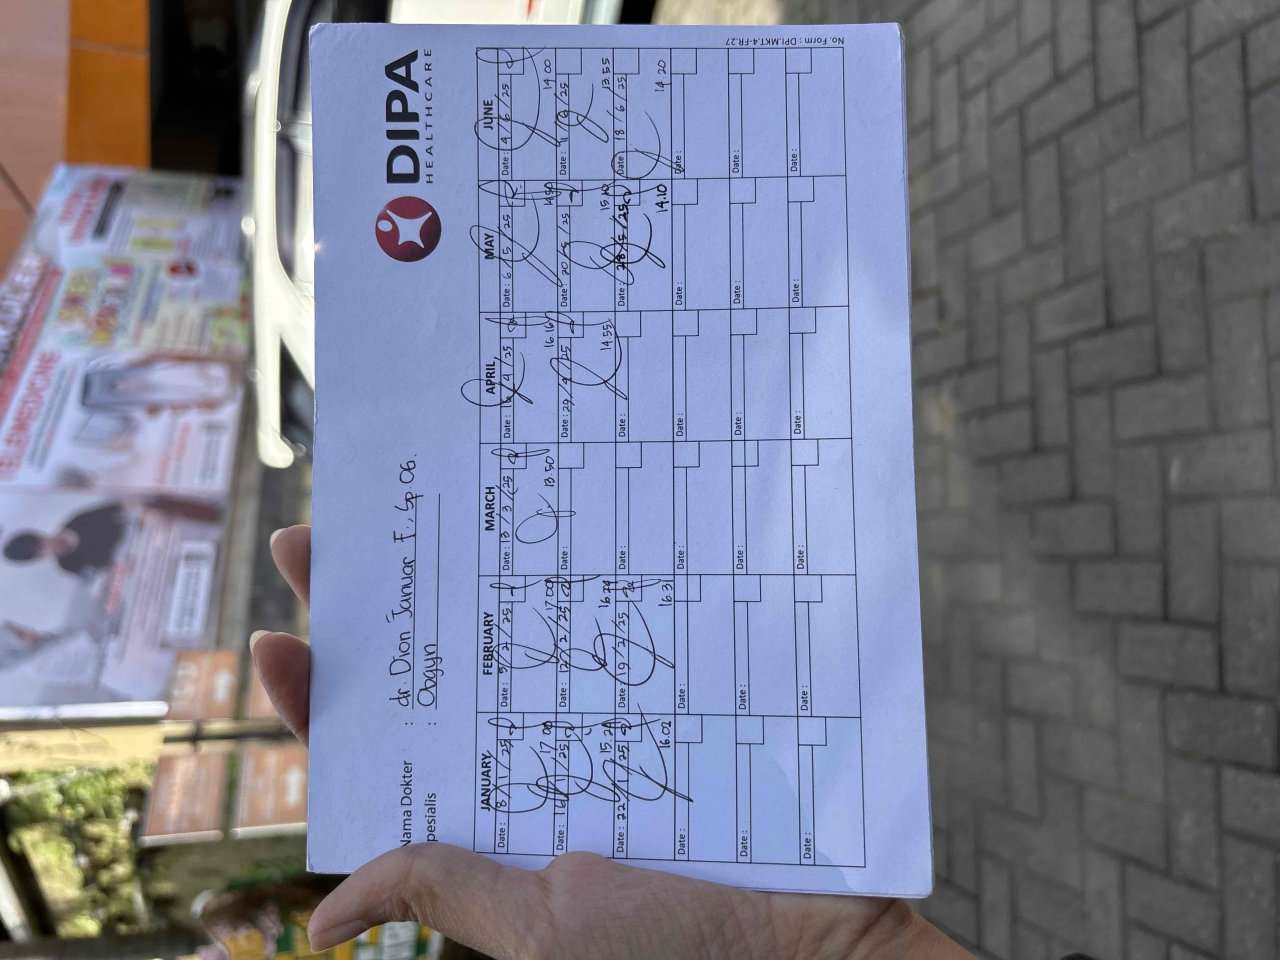 DIPA
HEALTHCARE
Nama Dokter : dr. Dion Januar F., Sp.OG.
pesialis : Obgyn
JANUARY FEBRUARY MARCH APRIL MAY JUNE
Date: 8/1/25 Date: 5/2/25 Date: 13/3/25 Date: /4/25 Date: 6/5/25 Date: 4/6/25
17 00 17 00 13.50 16.16 14.50 14 00
Date: 16/1/25 Date: 12/2/25 Date: Date: 29/4/25 Date: 20/5/25 Date: 11/6/25
15 29 16.24 14.55 15.10 13.55
Date: 22/1/25 Date: 19/2/25 Date: Date: Date: 28/5/25 Date: 18/6/25
16.02 16.31 14.10 14.20
Date: Date: Date: Date: Date: Date:
Date: Date: Date: Date: Date: Date:
Date: Date: Date: Date: Date: Date:
No. Form : DPI.MKT.4-FR.27
TELEMEDICINE